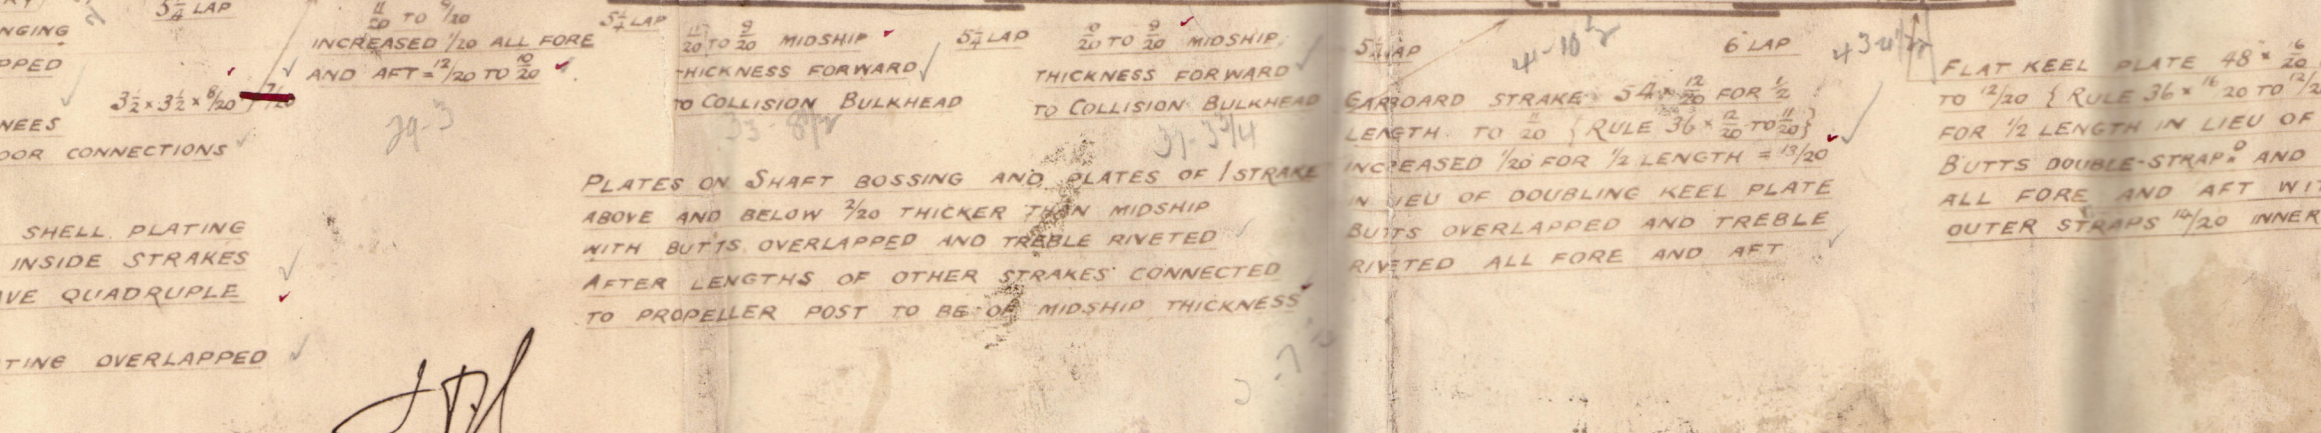 5¼ LAP
NGING
PPED
3½ × 3½ × 8/20 7/20
NEES
OOR CONNECTIONS
SHELL PLATING
INSIDE STRAKES
VE QUADRUPLE
TING OVERLAPPED
11/20 TO 9/20
INCREASED 1/20 ALL FORE
AND AFT = 12/20 TO 10/20
29-3
5¼ LAP
11/20 TO 9/20 MIDSHIP
THICKNESS FORWARD
TO COLLISION BULKHEAD
5¼ LAP
TO 9/20 MIDSHIP
THICKNESS FORWARD
TO COLLISION BULKHEAD
PLATES ON SHAFT BOSSING AND PLATES OF 1 STRAKE
ABOVE AND BELOW 2/20 THICKER THAN MIDSHIP
WITH BUTTS OVERLAPPED AND TREBLE RIVETED
AFTER LENGTHS OF OTHER STRAKES CONNECTED
TO PROPELLER POST TO BE OF MIDSHIP THICKNESS
5¼ LAP
6 LAP
GARBOARD STRAKE 54 × 12/20 FOR ½
LENGTH TO 11/20 {RULE 36 × 12/20 TO 11/20}
INCREASED 1/20 FOR ½ LENGTH = 13/20
IN LIEU OF DOUBLING KEEL PLATE
BUTTS OVERLAPPED AND TREBLE
RIVETED ALL FORE AND AFT
FLAT KEEL PLATE 48 × 16/20
TO 12/20 {RULE 36 × 16/20 TO 12/2
FOR ½ LENGTH IN LIEU OF
BUTTS DOUBLE-STRAP.D AND
ALL FORE AND AFT WIT
OUTER STRAPS 14/20 INNER